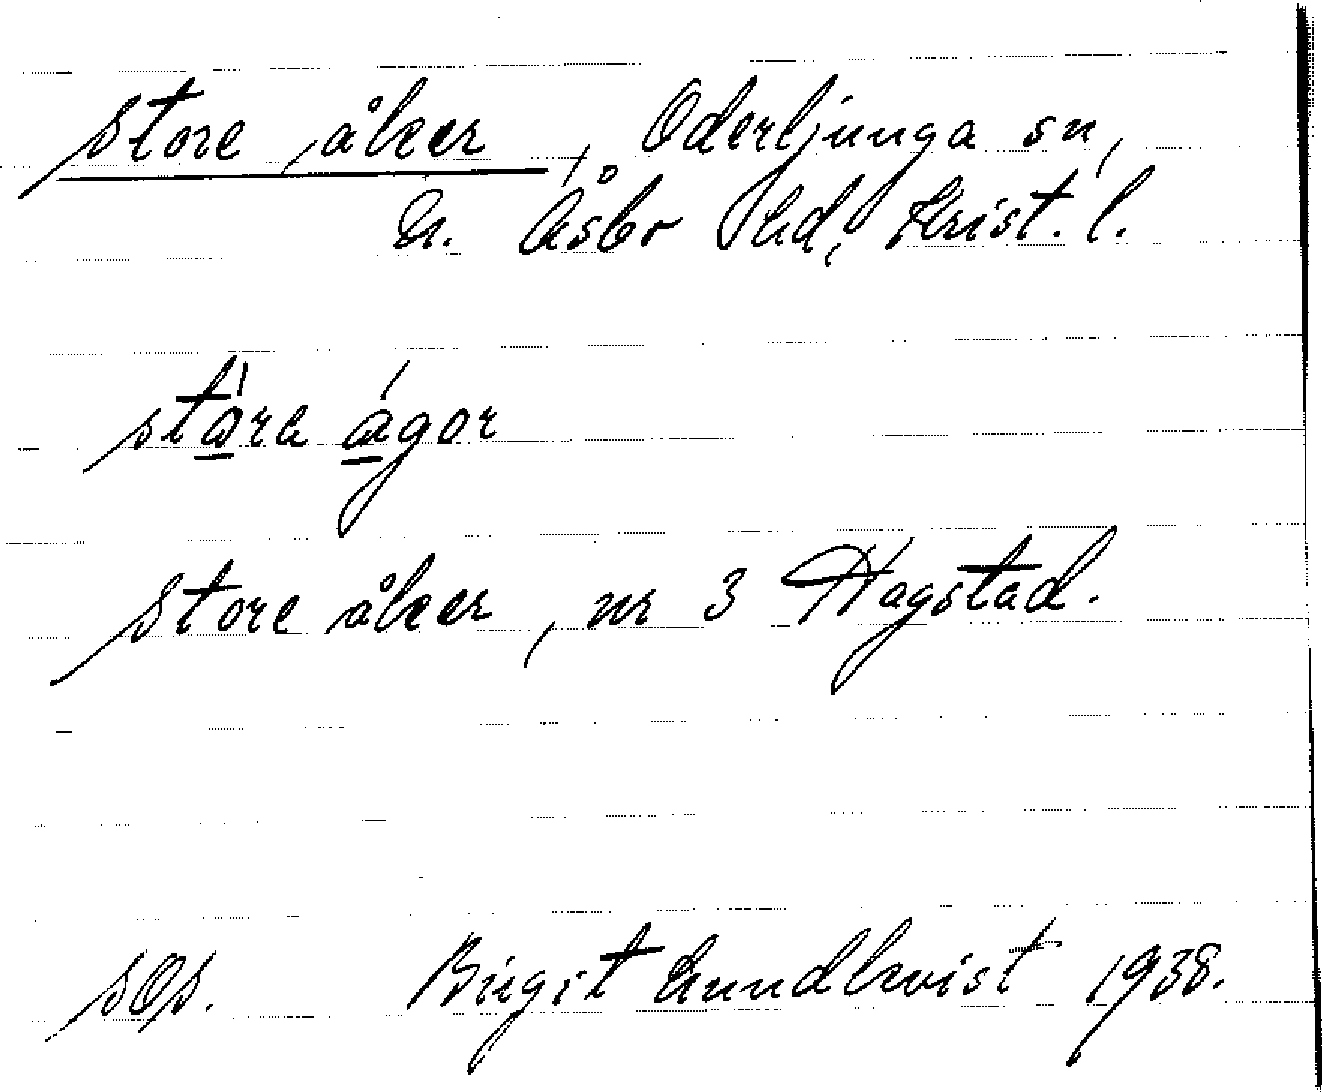 store åker, Oderljunga sn,
N. Åsbo hd, Krist. l.
stǻra ǻgor
store åker, nr 3 Hagstad.
sǾs. Birgit Lundkvist 1938.